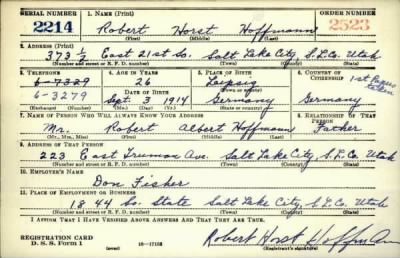 SERIAL NUMBER 1. NAME (Print) ORDER NUMBER
2214 Robert Horst Hoffmann 2523
(First) (Middle) (Last)
2. ADDRESS (Print)
373 1/2 East 21st So. Salt Lake City S.L.Co. Utah
(Number and street or R. F. D. number) (Town) (County) (State)
3. TELEPHONE 4. AGE IN YEARS 5. PLACE OF BIRTH 6. COUNTRY OF CITIZENSHIP 1st Papers taken
6-7329 26 Leipzig
6-3279 DATE OF BIRTH (Town or county)
Sept. 3 1914 Germany Germany
(Exchange) (Number) (Mo.) (Day) (Yr.) (State or country)
7. NAME OF PERSON WHO WILL ALWAYS KNOW YOUR ADDRESS 8. RELATIONSHIP OF THAT PERSON
Mr. Robert Albert Hoffmann Father
(Mr., Mrs., Miss) (First) (Middle) (Last)
9. ADDRESS OF THAT PERSON
223 East Truman Ave. Salt Lake City S.L.Co. Utah
(Number and street or R. F. D. number) (Town) (County) (State)
10. EMPLOYER'S NAME
Don Fisher
11. PLACE OF EMPLOYMENT OR BUSINESS
1844 So. State Salt Lake City, S.L.Co. Utah
(Number and street or R. F. D. number) (Town) (County) (State)
I AFFIRM THAT I HAVE VERIFIED ABOVE ANSWERS AND THAT THEY ARE TRUE.
REGISTRATION CARD
D. S. S. Form 1 16-17105 Robert Horst Hoffmann
(over)